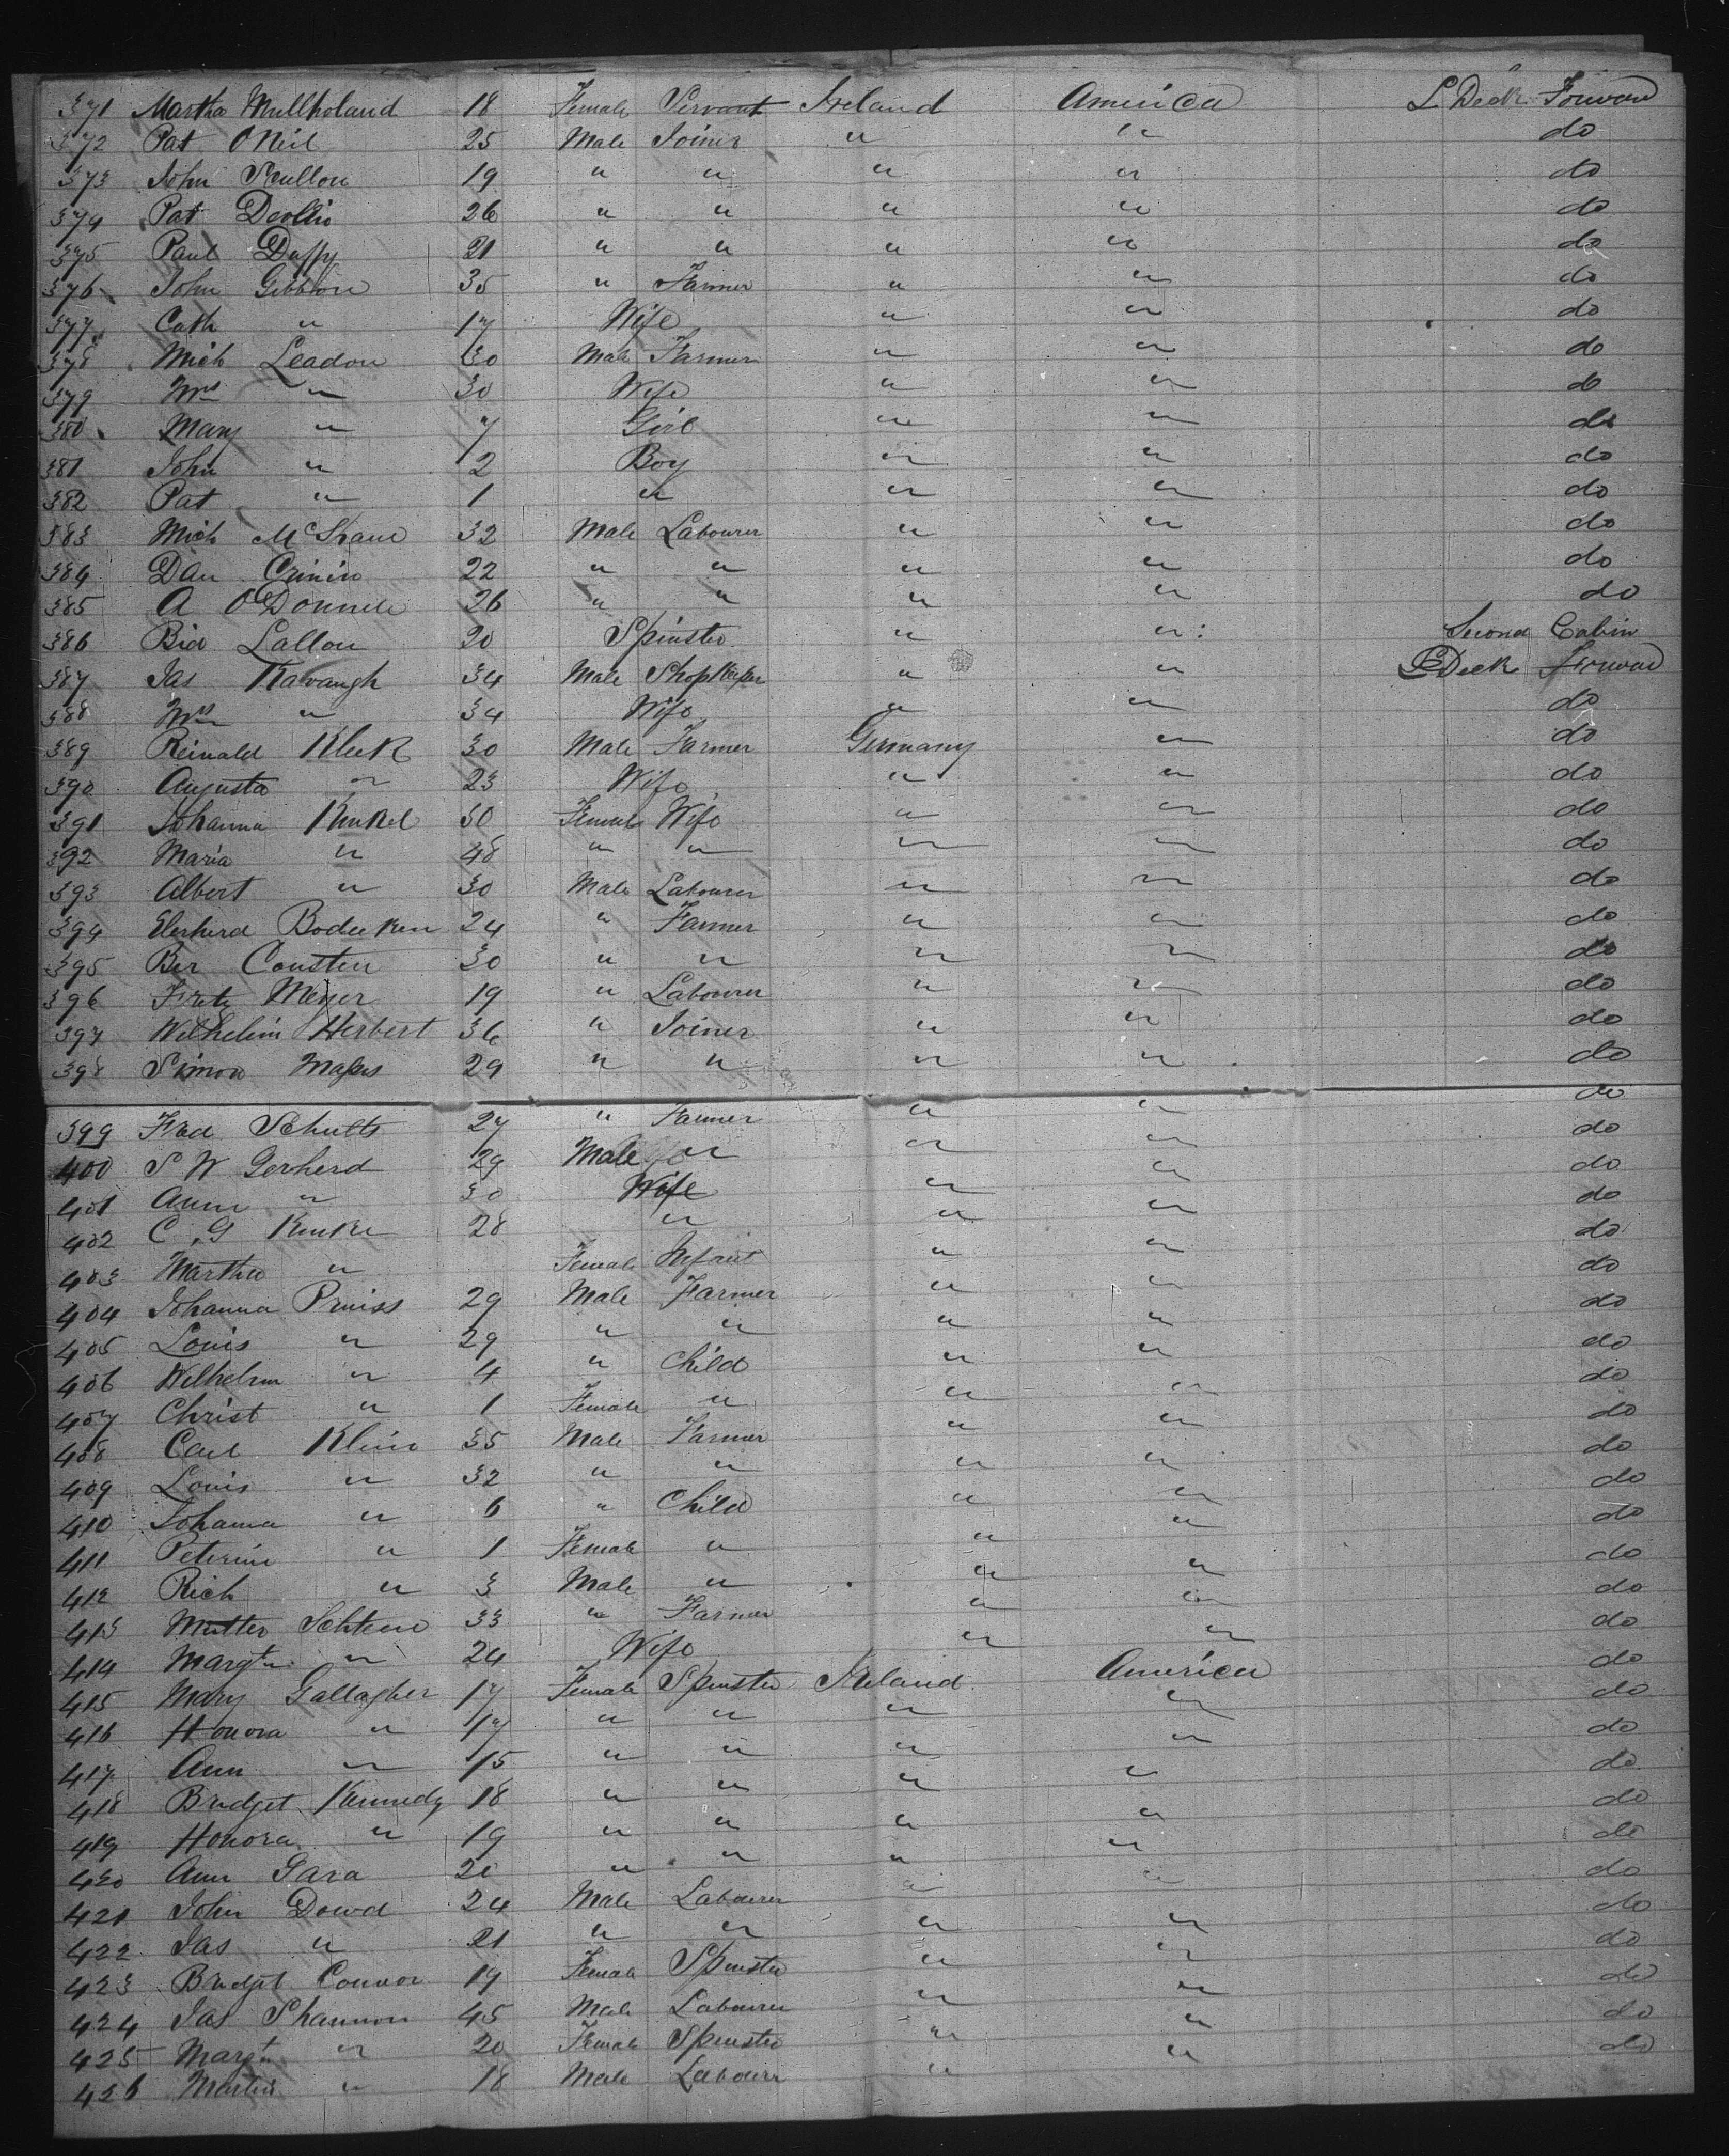 371 Martha Mullholand 18 Female Servant Ireland America L Deck Forward
372 Pat O'Neil 25 Male Joiner " " do
373 John Scullon 19 " " " " do
374 Pat Devlin 26 " " " " do
375 Paul Duffy 21 " " " " do
376 John Gibbon 35 " Farmer " " do
377 Cath " 17 Wife " " do
378 Mich Leadon 30 Male Farmer " " do
379 Mrs " 30 Wife " " do
380 Mary " 7 Girl " " do
381 John " 2 Boy " " do
382 Pat " 1 " " " do
383 Mich McShane 32 Male Labourer " " do
384 Dan Cminin 22 " " " " do
385 A O'Donnell 26 " " " " do
386 Bid Lallon 20 Spinster " " Second Cabin
387 Jas Kavaugh 34 Male Shopkeeper " " Deck Forward
388 Mrs " 34 Wife " " do
389 Reinald Kleek 30 Male Farmer Germany " do
390 Augusta " 23 Wife " " do
391 Johanna Kunkel 50 Female Wife " " do
392 Maria " 48 " " " " do
393 Albert " 30 Male Labourer " " do
394 Eberherd Bodecken 24 " Farmer " " do
395 Ber Cousten 30 " " " " do
396 Fritz Meyer 19 " Labourer " " do
397 Wilhelim Herbert 36 " Joiner " " do
398 Simon 29 " " " " do
399 Fred Schults 27 " Farmer " " do
400 S W Gerherd 29 Male " " " do
401 Anna " 30 Wife " " do
402 C. G 28 " " " do
403 Martha " Female Infant " " do
404 Johanna Pruiss 29 Male Farmer " " do
405 Louis " 29 " " " " do
406 Wilhelm " 4 " Child " " do
407 Christ " 1 Female " " " do
408 Carl Klein 35 Male Farmer " " do
409 Louis " 32 " " " " do
410 Johanna " 6 " Child " " do
411 Peterine " 1 Female " " " do
412 Rich " 3 Male " " " do
413 Mutter 33 " Farmer " " do
414 Margt " 24 Wife " " do
415 Mary Gallagher 17 Female Spinster Ireland America do
416 Honora " 17 " " " " do
417 Ann " 15 " " " " do
418 Bridget Kennedy 18 " " " " do
419 Honora " 19 " " " " do
420 Ann Gara 20 " " " " do
421 John Dowd 24 Male Labourer " " do
422 Jas " 21 " " " " do
423 Bridget Connor 19 Female Spinster " " do
424 Jas Shannon 45 Male Labourer " " do
425 Margt " 20 Female Spinster " " do
426 Martin " 18 Male Labourer " "